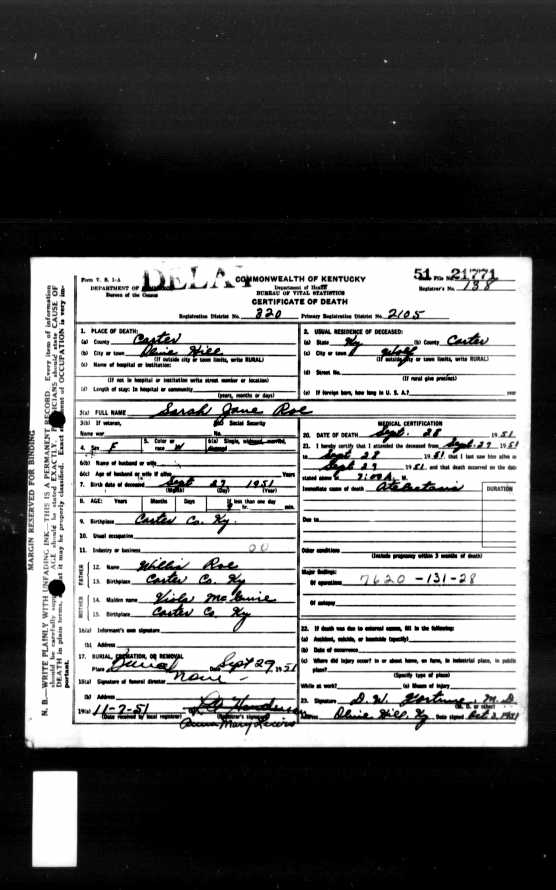 Form V. S. 1-A
DEPARTMENT OF
Bureau of the Census
DELAY
COMMONWEALTH OF KENTUCKY
Department of Health
BUREAU OF VITAL STATISTICS
CERTIFICATE OF DEATH
51 File No. 21771
Registrar's No. 138
Registration District No. 320 Primary Registration District No. 2105
MARGIN RESERVED FOR BINDING
N. B.—WRITE PLAINLY WITH UNFADING INK—THIS IS A PERMANENT RECORD. Every item of information
should be carefully AGE should be stated EXACTLY. should state CAUSE OF
DEATH in plain terms, it may be properly classified. Exact of OCCUPATION is very im-
portant.
1. PLACE OF DEATH:
(a) County Carter
(b) City or town Olive Hill
(If outside city or town limits, write RURAL)
(c) Name of hospital or institution:
(If not in hospital or institution write street number or location)
(d) Length of stay: In hospital or community
(years, months or days)
2. USUAL RESIDENCE OF DECEASED:
(a) State Ky (b) County Carter
(c) City or town Wolf
(If outside city or town limits, write RURAL)
(d) Street No.
(If rural give precinct)
(e) If foreign born, how long in U. S. A.? year
3(a) FULL NAME Sarah Jane Roe
3(b) If veteran, (c) Social Security
Name war No.
4. Sex F 5. Color or race W 6(a) Single, widowed, married, divorced
6(b) Name of husband or wife
6(c) Age of husband or wife if alive Years
7. Birth date of deceased Sept 27 1951
(Month) (Day) (Year)
8. AGE: Years Months Days If less than one day
hr. min.
9. Birthplace Carter Co. Ky.
10. Usual occupation
11. Industry or business 00
FATHER
12. Name Willie Roe
13. Birthplace Carter Co Ky
MOTHER
14. Maiden name Viola McGuire
15. Birthplace Carter Co Ky
16(a) Informant's own signature
(b) Address
17. BURIAL, CREMATION, OR REMOVAL
Place Burial Date Sept 29, 1951
18(a) Signature of funeral director none
(b) Address
19(a) 11-7-51
(Date received by local registrar) (Registrar's signature)
Henderson
Anna Mary Lewis
MEDICAL CERTIFICATION
20. DATE OF DEATH Sept. 28 1951
21. I hereby certify that I attended the deceased from Sept 27 1951
to Sept 28 1951 that I last saw her alive on
Sept 27 1951, and that death occurred on the date
stated above 7:00 A. M.
Immediate cause of death Atelectasis DURATION
Due to
Other conditions
(Include pregnancy within 3 months of death)
Major findings:
Of operations 7620-131-28
Of autopsy
22. If death was due to external causes, fill in the following:
(a) Accident, suicide, or homicide (specify)
(b) Date of occurrence
(c) Where did injury occur? in or about home, on farm, in industrial place, in public
place?
(Specify type of place)
While at work? (e) Means of injury
23. Signature D. W. M. D.
(M. D. or other)
Address Olive Hill, Ky Date signed Oct 3, 1951